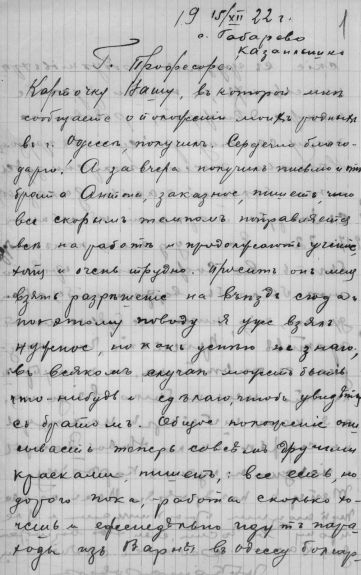 19 15/XII 22 г.
1
с. Габарево
Казанлышко
Г. Професоре.
Карточку Вашу, въ которой мне
сообщаете о положении моихъ родныхъ
въ г. Одессе, получилъ. Сердечно благо-
дарю. А за вчера получилъ письмо и отъ
брата Антона, заказное, пишетъ, что
все скорымъ темпомъ поправляется
все на работе и продолжаютъ учение
хотя и очень трудно. Проситъ онъ меня
взять разрешение на въездъ сюда
по этому поводу я уже взялъ
нужное, но какъ успею не знаю,
въ всякомъ случае можетъ быть
что-нибудь и сделаю, чтобы увидеть
съ братомъ. Общое положение опи
сываетъ теперь совсемъ другими
красками, пишетъ,: все есть, но
дорого пока, работы сколько хо-
чешь и еженедельно идутъ паро-
ходы изъ Варны въ Одессу болгар